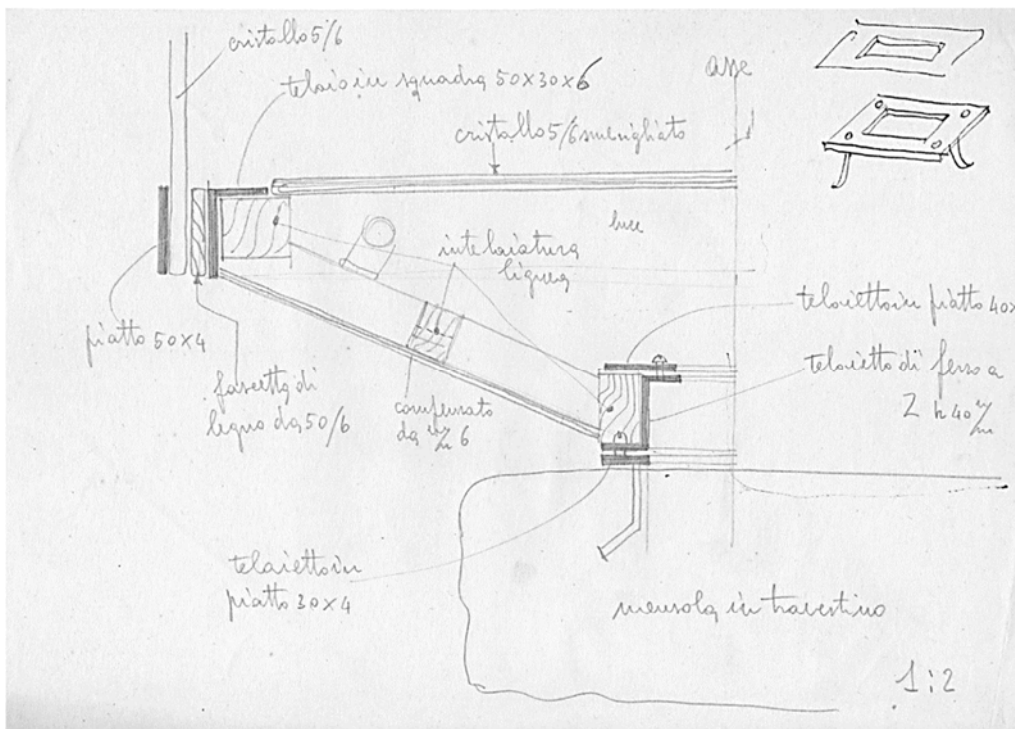 cristallo 5/6
telaio in squadra 50x30x6
asse
cristallo 5/6 smerigliato
luce
intelaiatura
lignea
telaietto in piatto 40x
piatto 50x4
telaietto di ferro a
Z h 40 m/m
fascetta di
legno da 50/6
compensato
da m/m 6
telaietto in
piatto 30x4
mensola in travertino
1:2